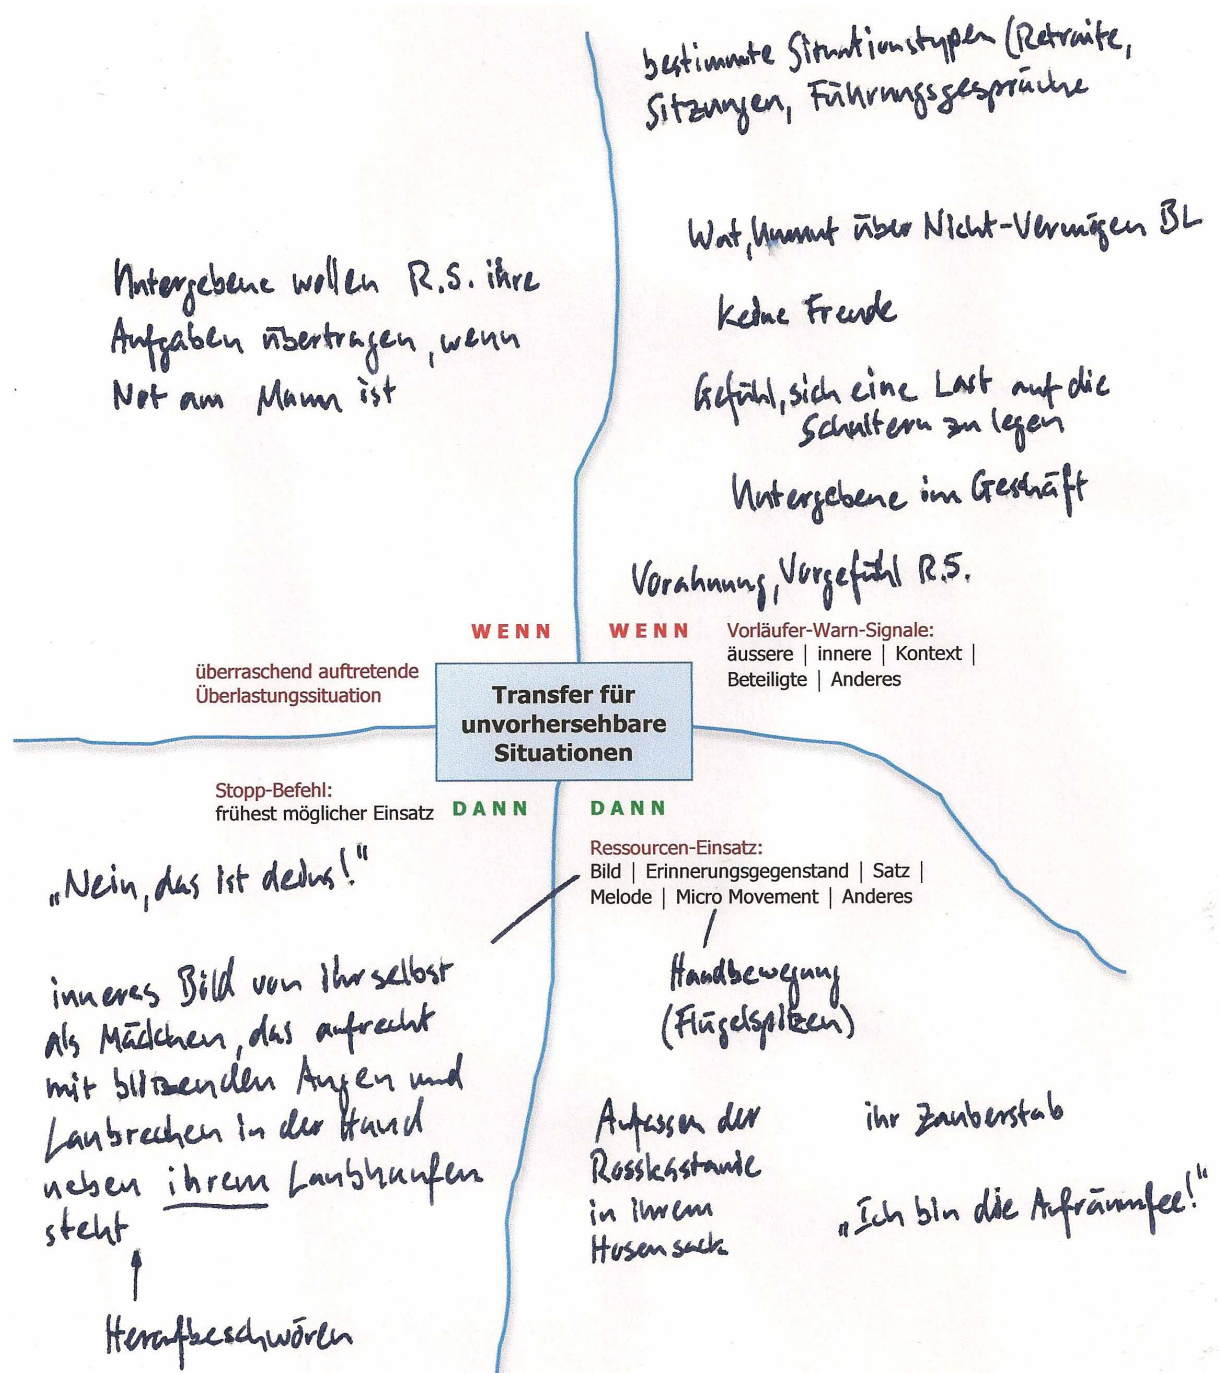 bestimmte Situationstypen (Retraite,
Sitzungen, Führungsgespräche
Wut, Unmut über Nicht-Vermögen BL
keine Freude
Gefühl, sich eine Last auf die
Schultern zu legen
Untergebene im Geschäft
Vorahnung, Vorgefühl R.S.
Untergebene wollen R.S. ihre
Aufgaben übertragen, wenn
Not am Mann ist
WENN
WENN
Vorläufer-Warn-Signale:
äussere | innere | Kontext |
Beteiligte | Anderes
überraschend auftretende
Überlastungssituation
Transfer für
unvorhersehbare
Situationen
Stopp-Befehl:
frühest möglicher Einsatz
DANN
DANN
Ressourcen-Einsatz:
Bild | Erinnerungsgegenstand | Satz |
Melode | Micro Movement | Anderes
„Nein, das ist deins!"
inneres Bild von ihr selbst
als Mädchen, das aufrecht
mit blitzenden Augen und
Laubrechen in der Hand
neben ihrem Laubhaufen
steht
Heraufbeschwören
Handbewegung
(Flügelspitzen)
Anfassen der
Rosskastanie
in ihrem
Hosensack
ihr Zauberstab
„Ich bin die Aufräumfee!"